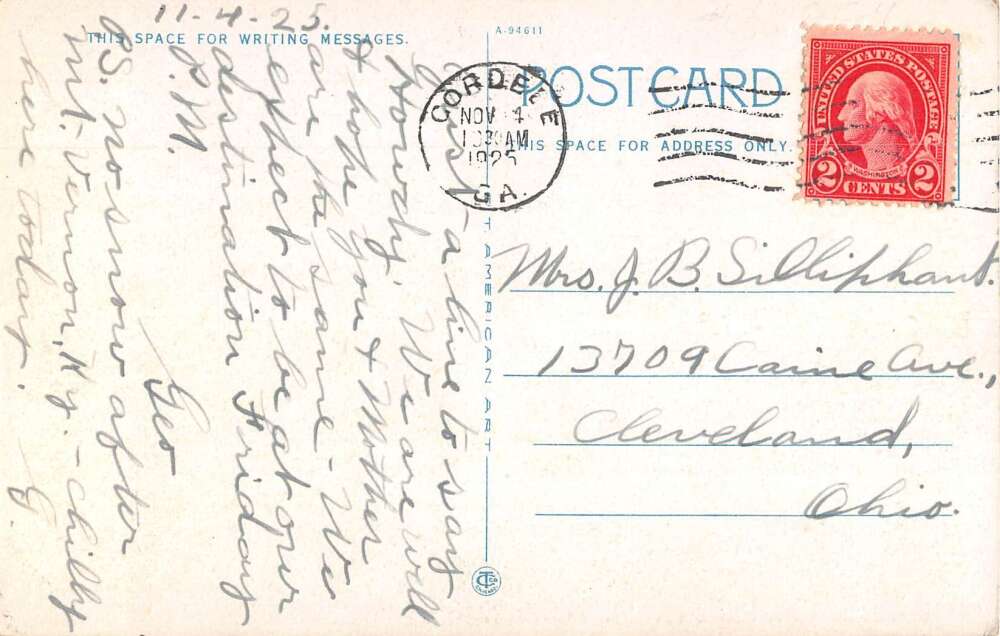 11-4-25.
THIS SPACE FOR WRITING MESSAGES.
Just a line to say
Howdy. We are well
& hope you & Mother
are the same - We
expect to be at our
destination Friday
P.M.
Geo
P.S. no snow after
Mt. Vernon, Ky. - chilly
here today.
G.
A-94611
POST CARD
THIS SPACE FOR ADDRESS ONLY.
CORDELE
NOV 4
10 30 AM
1925
GA.
UNITED STATES POSTAGE
WASHINGTON
2 CENTS 2
AMERICAN ART
Mrs. J. B. Silliphant.
13709 Caine Ave.,
Cleveland,
Ohio.